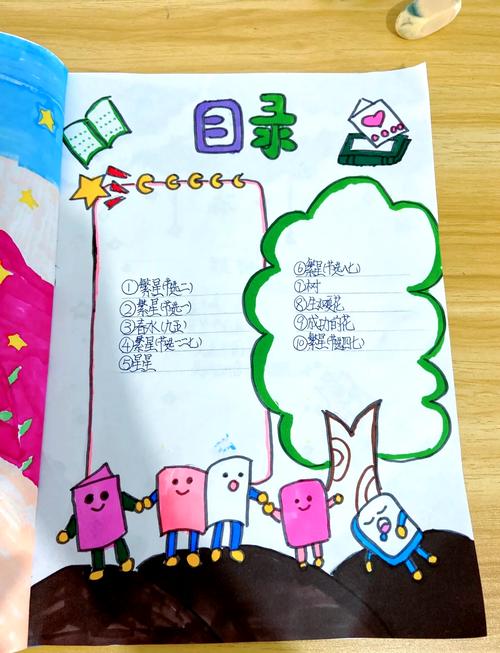 目录
①繁星(节选二)
②繁星(节选一)
③春水(九五)
④繁星(节选一二七)
⑤星星
⑥繁星(节选八七)
⑦树
⑧生如夏花
⑨成功的花
⑩繁星(节选四七)